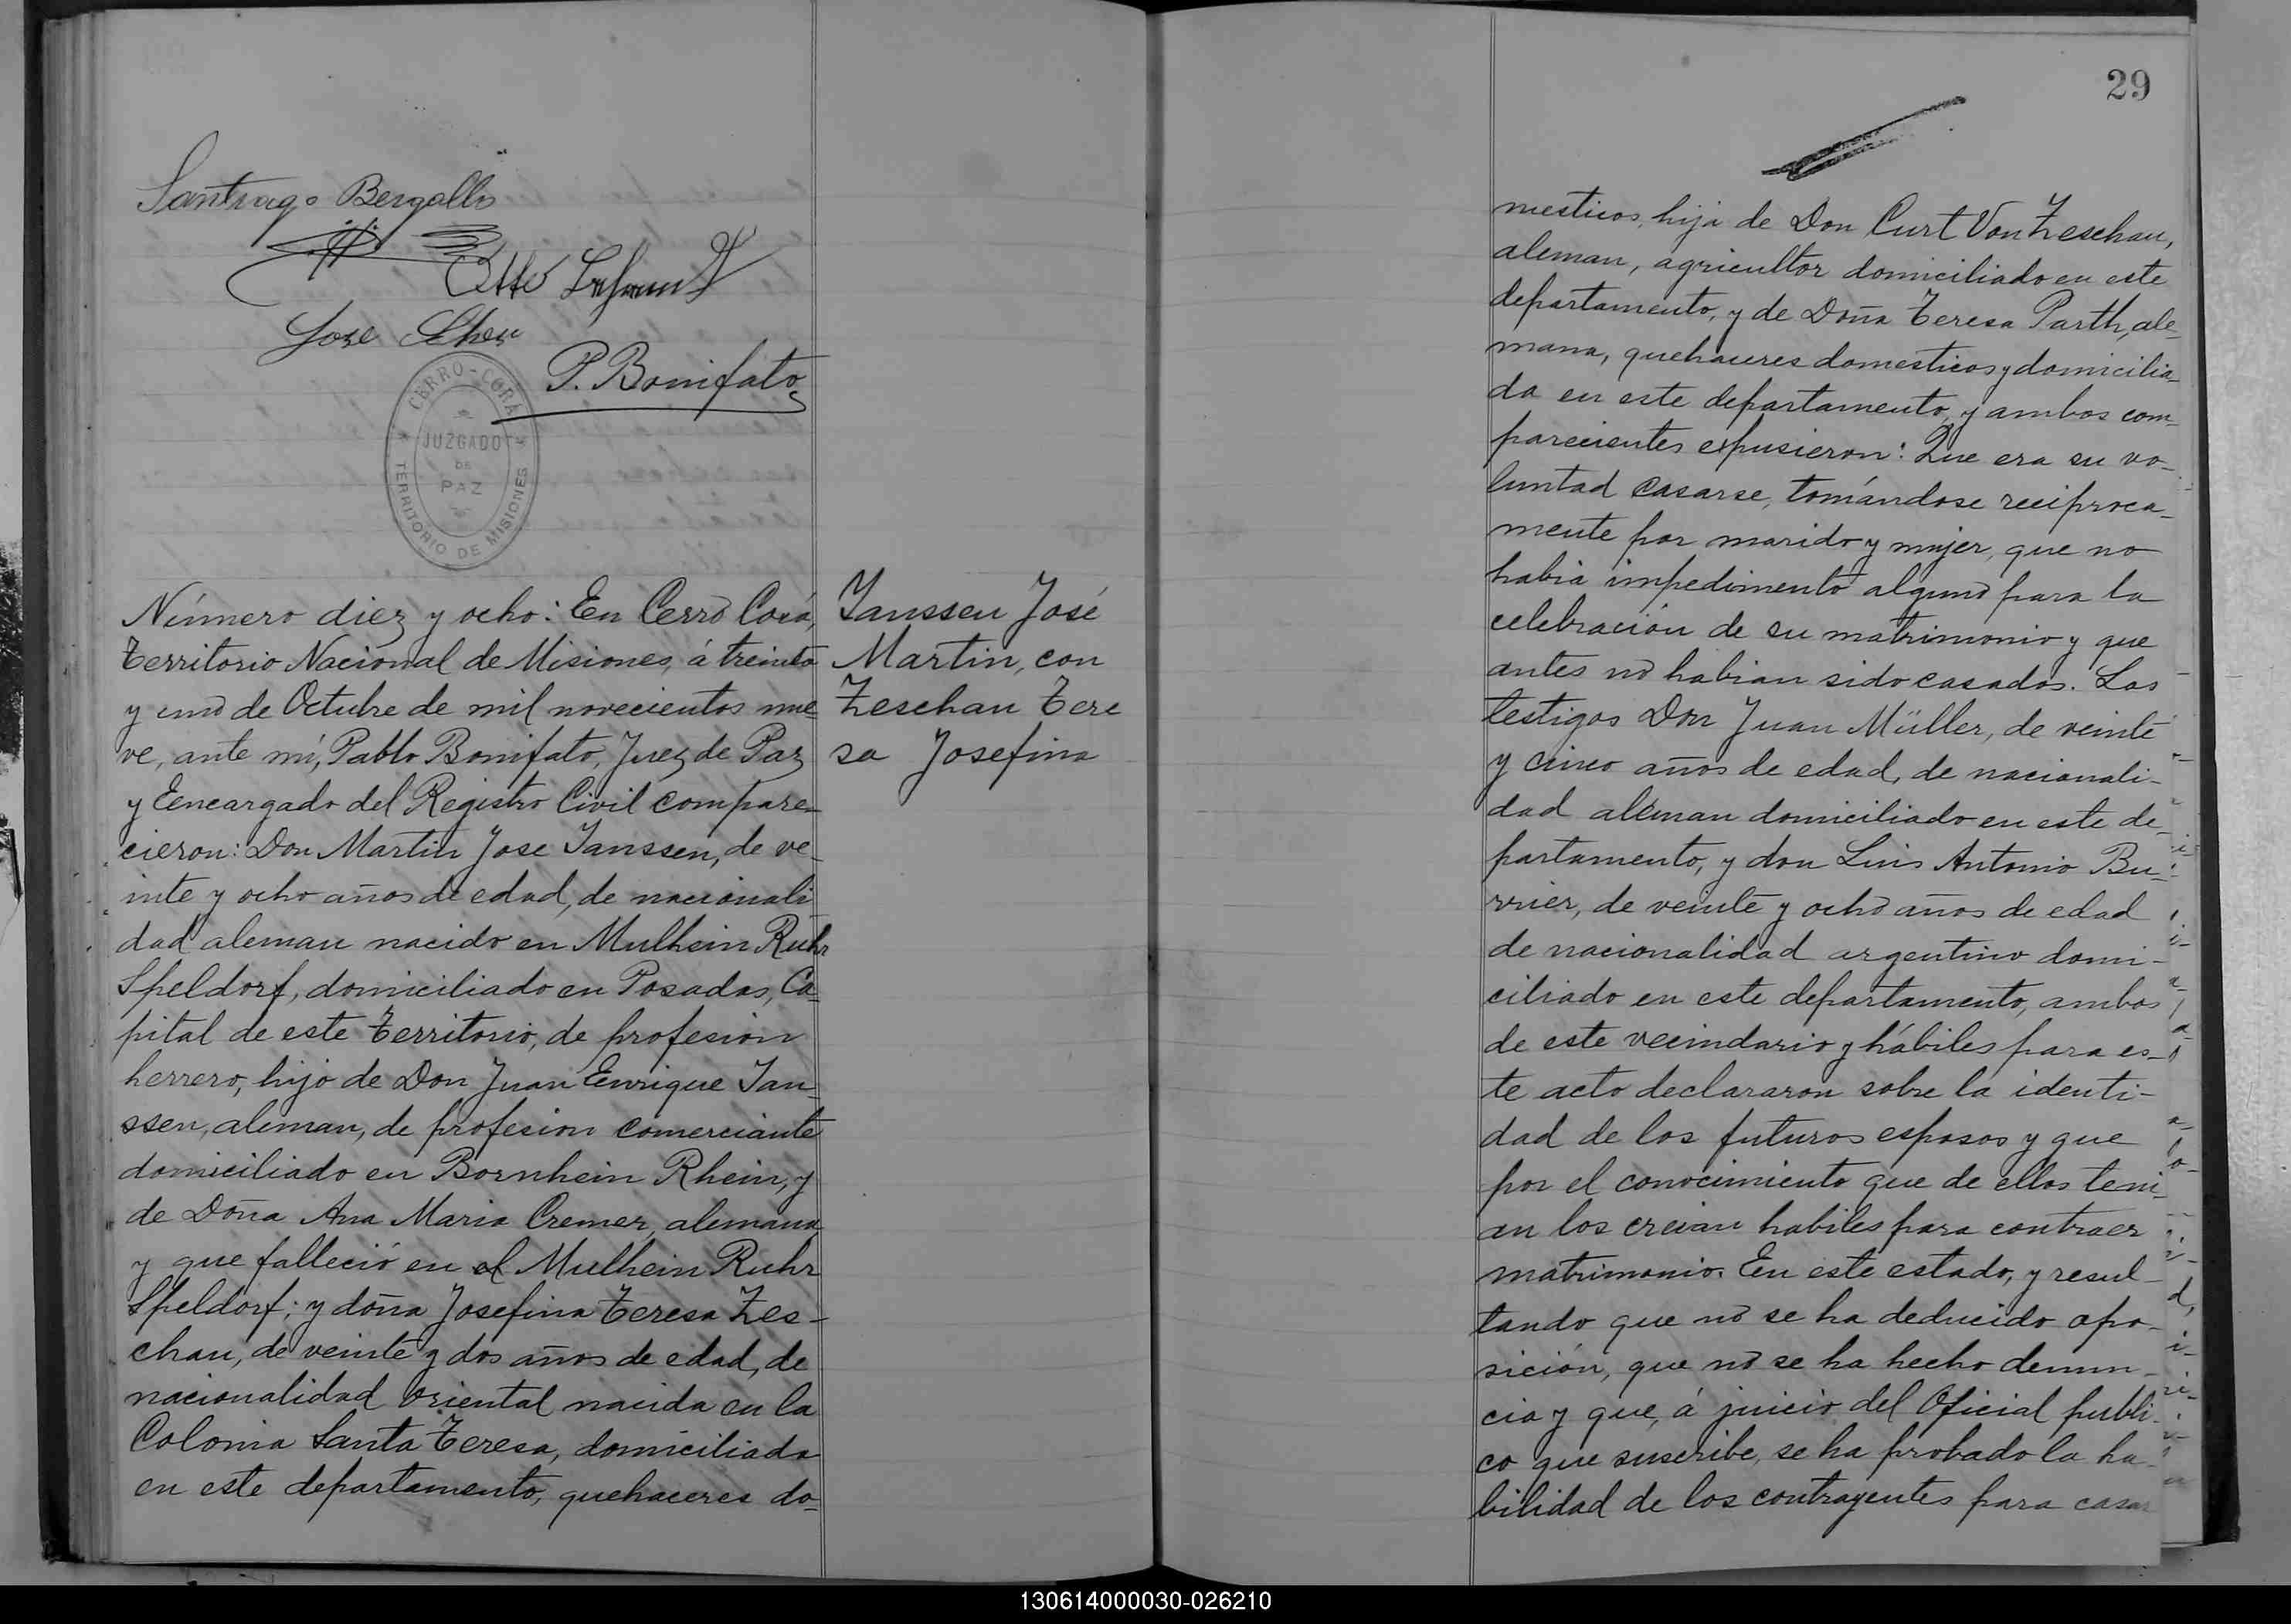 29
Santiago Bergallo
Otto
Jose
P. Bonifato
CERRO-CORÁ
JUZGADO
DE
PAZ
TERRITORIO DE MISIONES
Número diez y ocho: En Cerro Corá,
Territorio Nacional de Misiones, á treinta
y uno de Octubre de mil novecientos nue
ve, ante mí, Pablo Bonifato, Juez de Paz
y Eencargado del Registro Civil compare-
cieron: Don Martin Jose Janssen, de ve-
inte y ocho años de edad, de nacionali
dad aleman nacido en Mulhein Ruhr
Speldorf, domiciliado en Posadas, Ca-
pital de este Territorio, de profesion
herrero, hijo de Don Juan Enrique Jan-
ssen, aleman, de profesion comerciante
domiciliado en Bornhein Rhein, y
de Doña Ana Maria Cremer, alemana
y que falleció en el Mulhein Ruhr
Speldorf; y doña Josefina Teresa Zes-
chau, de veinte y dos años de edad, de
nacionalidad oriental nacida en la
Colonia Santa Teresa, domiciliada
en este departamento, quehaceres do-
Janssen José
Martin, con
Zeschau Tere
sa Josefina
mesticos, hija de Don Curt Von Zeschau,
aleman, agricultor domiciliado en este
departamento, y de Doña Teresa Parth, ale-
mana, quehaceres domesticos y domicilia-
da en este departamento, y ambos com-
parecientes expusieron: Que era su vo-
luntad casarse, tomándose reciproca-
mente por marido y mujer, que no
habia impedimento alguno para la
celebración de su matrimonio y que
antes no habian sido casados. Los
testigos Don Juan Müller, de veinte
y cinco años de edad, de nacionali-
dad aleman domiciliado en este de-
partamento, y don Luis Antonio Bu-
rrier, de veinte y ocho años de edad
de nacionalidad argentino domi-
ciliado en este departamento, ambos
de este vecindario y hábiles para es-
te acto declararon sobre la identi-
dad de los futuros esposos y que
por el conocimiento que de ellos teni-
an los creian habiles para contraer
matrimonio. En este estado, y resul-
tando que no se ha deducido opo-
sición, que no se ha hecho denun-
cia y que, á juicio del Oficial publi-
co que suscribe, se ha probado la ha-
bilidad de los contrayentes para casar
130614000030-026210